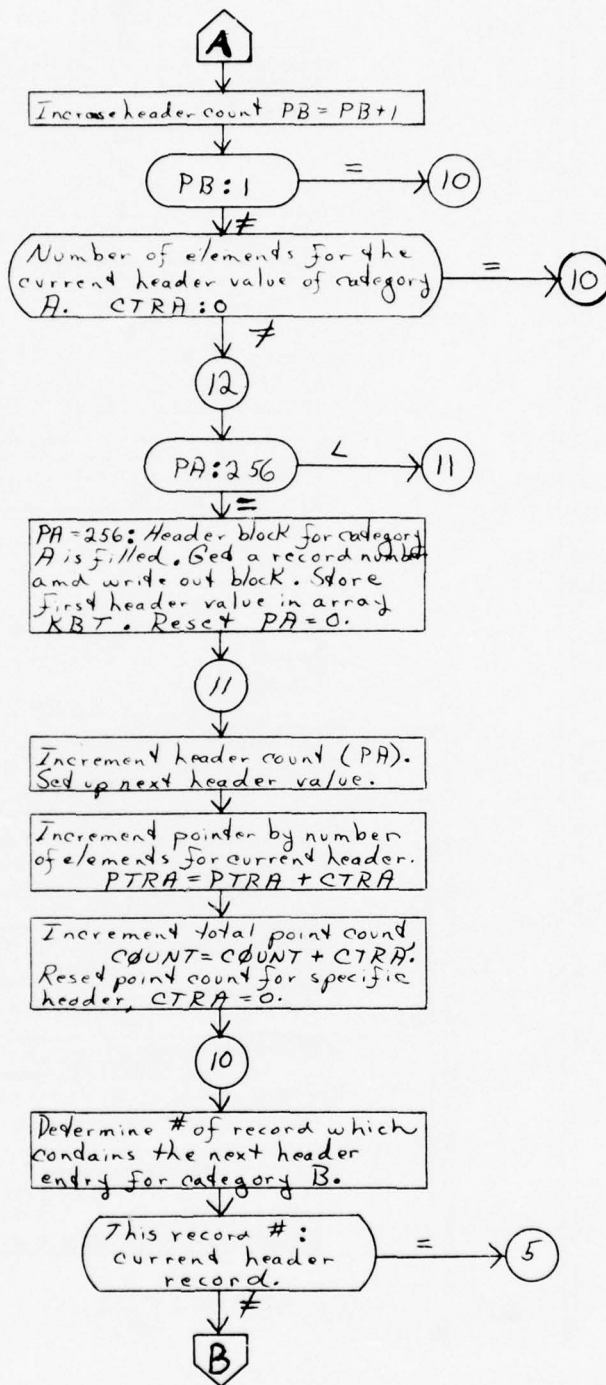 A
Increase header count PB = PB+1
PB:1
=
10
≠
Number of elements for the
current header value of category
A. CTRA:0
=
10
≠
12
PA:256
<
11
=
PA=256: Header block for category
A is filled. Get a record number
and write out block. Store
first header value in array
KBT. Reset PA=0.
11
Increment header count (PA).
Set up next header value.
Increment pointer by number
of elements for current header.
PTRA = PTRA + CTRA
Increment total point count
CØUNT = CØUNT + CTRA.
Reset point count for specific
header, CTRA = 0.
10
Determine # of record which
contains the next header
entry for category B.
This record #:
current header
record.
=
5
≠
B